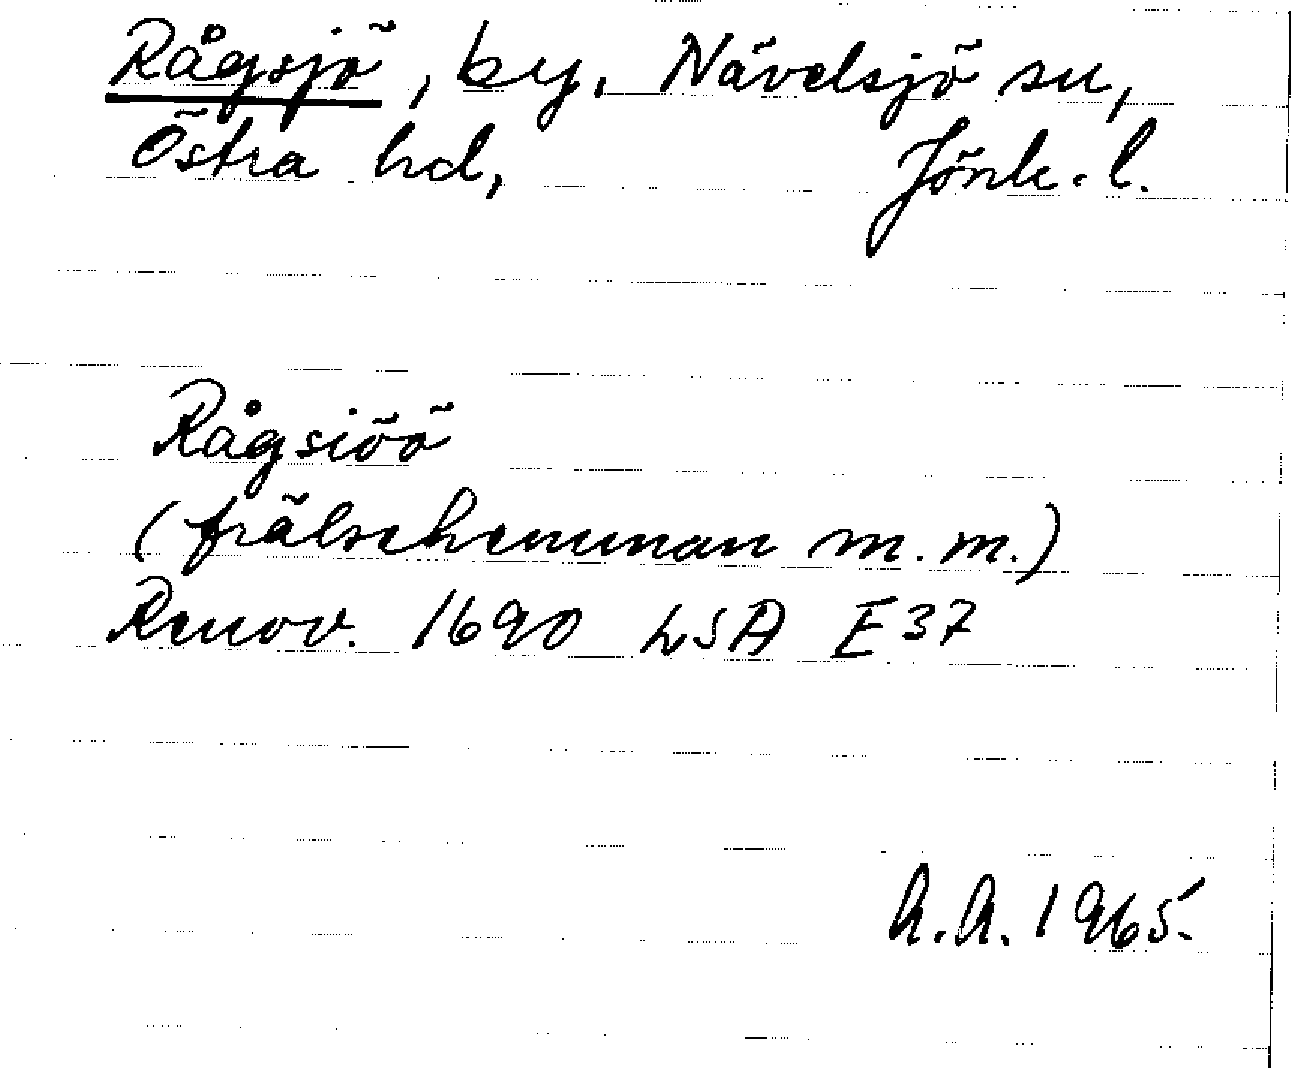 Rågsjö, by, Nävelsjö sn,
Östra hd, Jönk. l.
Rågsiöö
(frälsehemman m.m.)
Renov. 1690 LSA E37
A.A. 1965.